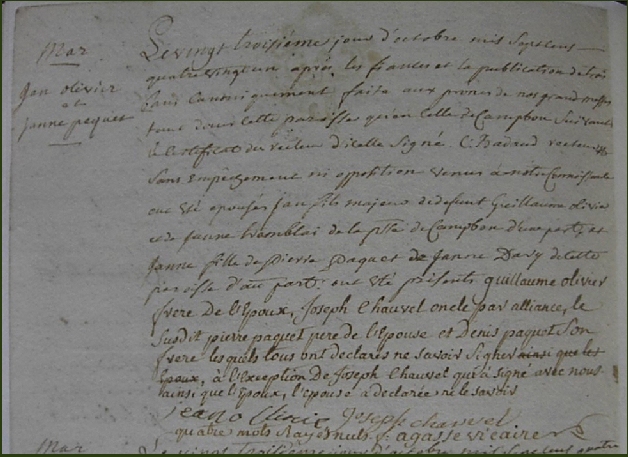 Mar
Jan olivier
et
Janne paquet
Le vingt troisième jour d'octobre mil Sept cens
quatre vingt un après les fiances et la publication de trois
bans Canoniquement faite aux prones de nos grand messes
tant dans cette paroisse qu'en celle de Campbon Suivant
le Certificat du recteur d'icelle Signé C. Badaud recteur
Sans empêchement ni opposition venus à notre Connoissance
ont été epousés Jan fils majeur de defunt Guillaume olivier
et de Janne tremblai de la psse de Campbon d'une part, et
Janne fille de pierre paquet de Janne Davy de cette
paroisse d'au part. ont été présents guillaume olivier
frere De l'Epoux, Joseph Chauvel oncle par alliance, le
Susdit pierre paquet pere de l'Epouse et Denis paquet Son
frere lesquels tous ont declarés ne savoir Signer ainsi que les
Epoux, à l'Exception De Joseph Chauvel qui a signé avec nous
ainsi que l'Epoux, l'epouse a declarée ne le savoir
Jean olivie Joseph chauvel
quatre mots Rayés nuls. f. agasse vicaire
Mar
Le vingt troisième jour d'octobre mil Sept cens quatre